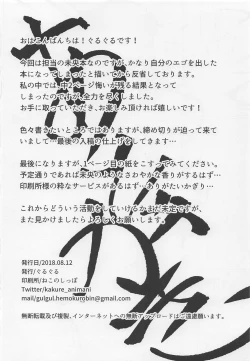 おはこんばんちは！ぐるぐるです！
今回は担当の未央本なのですが、かなり自分のエゴを出した
本になってしまったと描いてから反省しております。
私の中では、中2ページ悔いが残る結果となって
しまったのですが、全力を尽くしました。
お手に取っていただき、お楽しみ頂ければ嬉しいです！
色々書きたいところではありますが、締め切りが迫って来て
いまして…最後の入稿の仕上げをしてきます…
最後になりますが、1ページ目の紙をこすってみてください。
予定通りであれば未央のようなさわやかな香りがするはず…
印刷所様の粋なサービスがあるはず…ありがたいかぎり…
これからどういう活動をしていけるかまだ未定ですが、
また見かけましたらよろしくお願いします。
発行日/2018.08.12
発行/ぐるぐる
印刷所/ねこのしっぽ
Twitter/kakure_animani
mail/gulgul.hemokurobin@gmail.com
無断転載及び複製、インターネットへの無断アップロードはご遠慮願います。